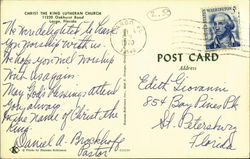 CHRIST THE KING LUTHERAN CHURCH
11220 Oakhurst Road
Largo, Florida
We are delighted to have
you worship with us.
We hope you will worship
with us again.
May God's Blessings attend
you always
in the name of Christ the
King.
Daniel A. Brockhoff
Pastor
POST CARD
Address
Edith Giovanni
854 Bay Pines Pk
St. Petersburg
Florida